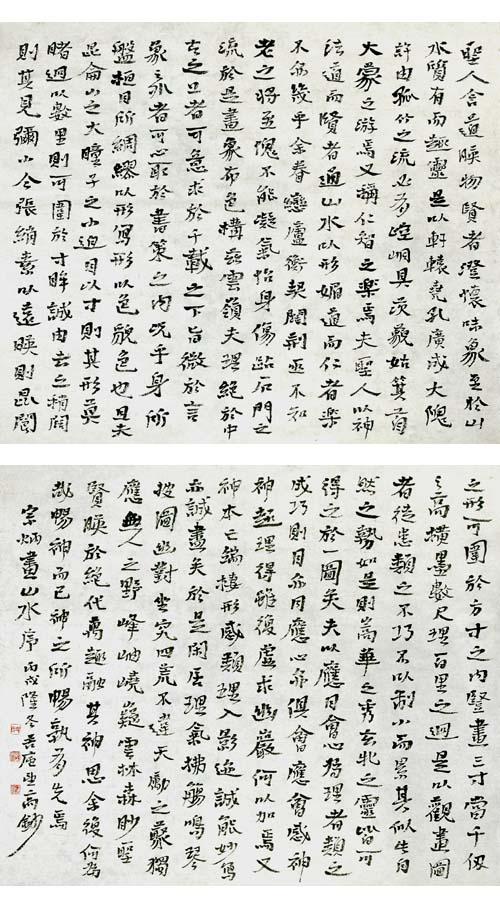 聖人含道暎物賢者澄懷味象至於山
水質有而趣靈是以軒轅堯孔廣成大隗
許由孤竹之流必有崆峒具茨藐姑箕首
大蒙之游焉又稱仁智之樂焉夫聖人以神
法道而賢者通山水以形媚道而仁者樂
不亦幾乎余眷戀廬衡契闊荊巫不知
老之將至愧不能凝氣怡身傷跕石門之
流於是畫象布色構茲雲嶺夫理絕於中
古之上者可意求於千載之下旨微於言
象之外者可心取於書策之內況乎身所
盤桓目所綢繆以形寫形以色貌色也且夫
昆侖山之大瞳子之小迫目以寸則其形莫
睹迥以數里則可圍於寸眸誠由去之稍闊
則其見彌小今張綃素以遠暎則昆閬
之形可圍於方寸之內豎畫三寸當千仞
之高橫墨數尺理百里之迥是以觀畫圖
者徒患類之不巧不以制小而累其似自
然之勢如是則嵩華之秀玄牝之靈皆可
得之於一圖矣夫以應目會心為理者類之
成巧則目亦同應心亦俱會應會感神
神超理得雖復虛求幽巖何以加焉又
神本亡端棲形感類理入影迹誠能妙寫
亦誠盡矣於是閒居理氣拂觴鳴琴
披圖幽對坐究四荒不違天勵之藂獨
應無人之野峰岫嶢嶷雲林森眇聖
賢暎於絕代萬趣融其神思余復何為
哉暢神而已神之所暢孰有先焉
宗炳畫山水序 丙戌隆冬